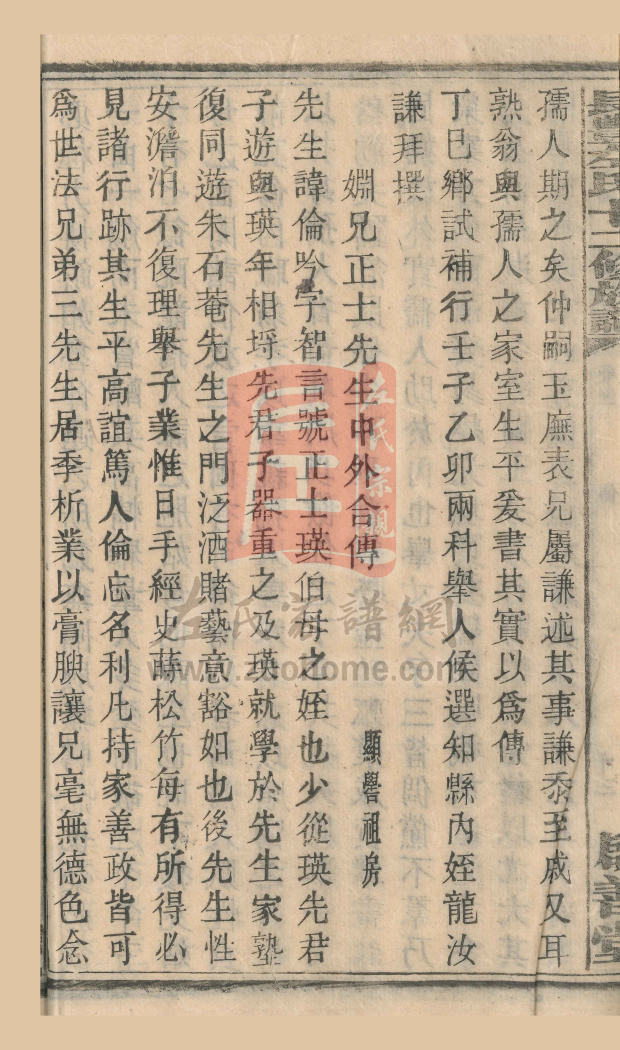 孺人期之矣仲嗣玉廡表兄屬謙述其事謙忝至戚又耳
熟翁與孺人之家室生平爰書其實以爲傳
丁巳鄉試補行壬子乙卯兩科舉人候選知縣內姪龍汝
謙拜撰
嫺兄正士先生中外合傳
顯譽祖房
先生諱倫吟字智言號正士瑛伯母之姪也少從瑛先君
子遊與瑛年相埒先君子器重之及瑛就學於先生家塾
復同遊朱石菴先生之門泛酒賭藝意豁如也後先生性
安澹泊不復理舉子業惟日手經史蒔松竹每有所得必
見諸行跡其生平高誼篤人倫忘名利凡持家善政皆可
爲世法兄弟三先生居季析業以膏腴讓兄毫無德色念
左氏宗親
左氏家譜網
www.zuohome.com